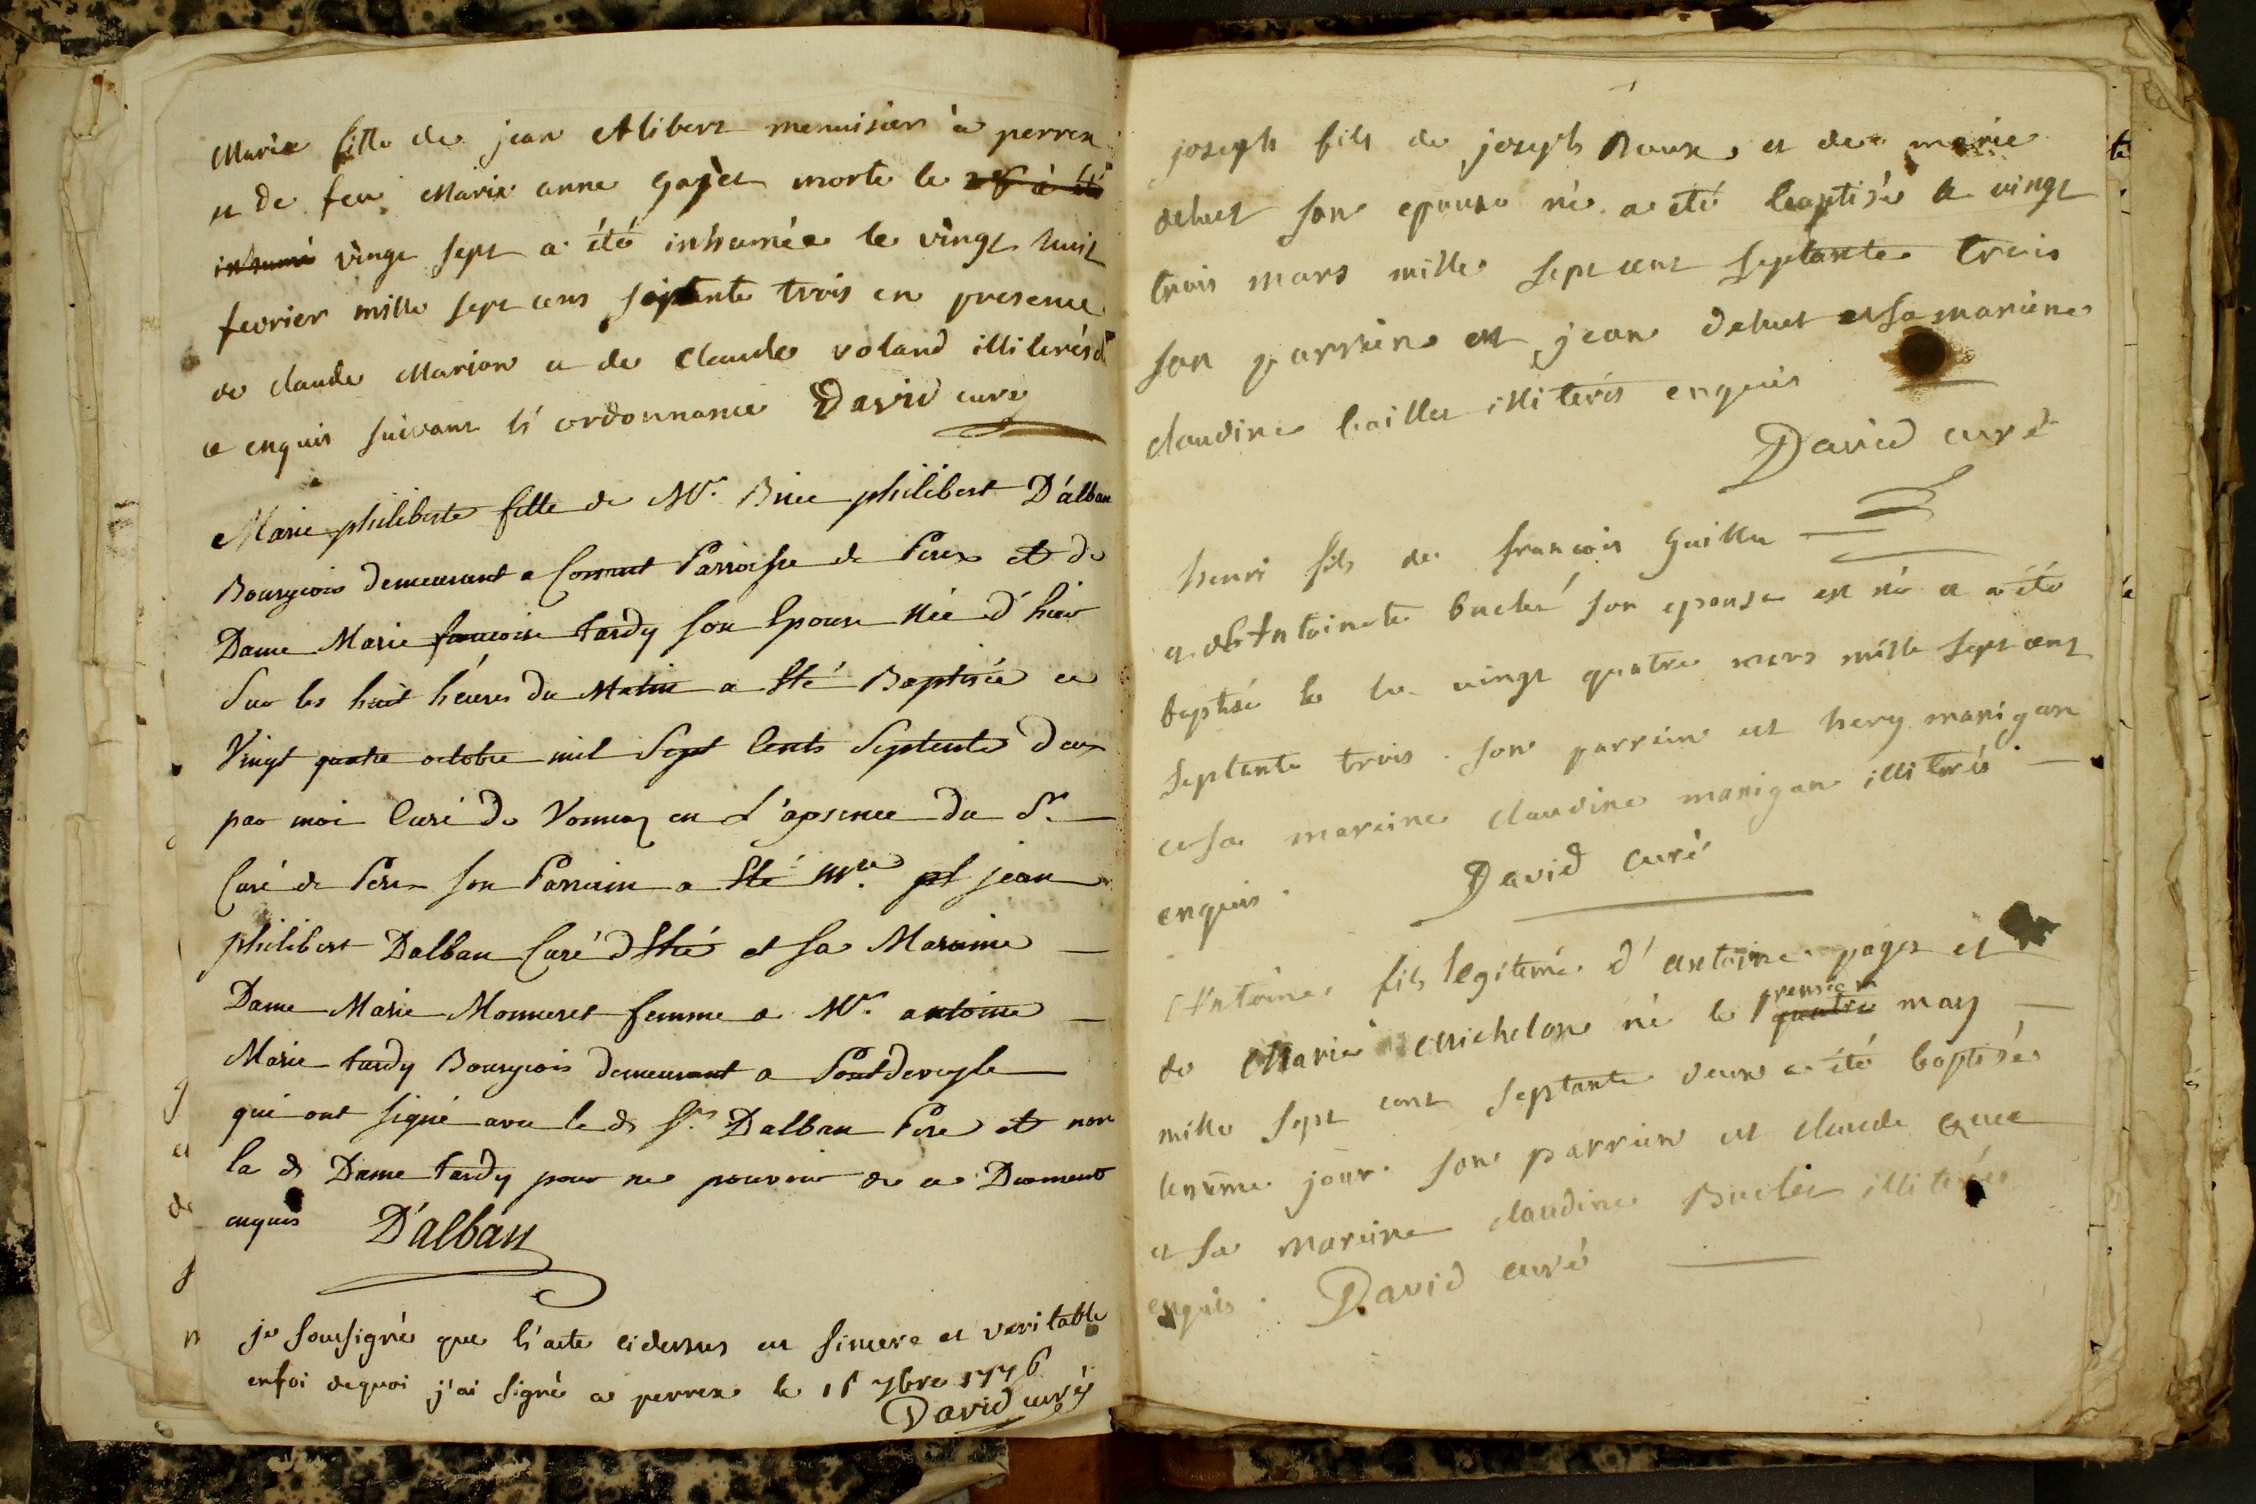 Marie fille de jean Alibert menuisier à perrex
et de feu Marie anne Gayet morte le
vingt sept a été inhumée le vingt huit
fevrier mille sept cens septante trois en presence
de claude Marion et de Claude voland illiterés
et enquis suivant l'ordonnance David curé
Marie philiberte fille de Mr. Brice philibert D'alban
Bourgeois demeurant a Cormat Parroisse de Perex et de
Dame Marie francoise tardy son Epouse Née d'hier
Sur les huit héures du Matin a Eté Baptisée ce
Vingt quatre octobre mil Sept Cents Septente deux
par moi Curé de Vonnaz en L'apsence du Sr.
Curé de Perex son Parrain a Eté jean
philibert Dalban Curé et sa Maraine
Dame Marie Monneret femme a Mr. antoine
Marie tardy Bourgeois demeurant a Pontdeveyle
qui ont signé avec le d Sr. Dalban Pere et non
la d Dame tardy pour ne pouvoir de ce Dument
enquis D'alban
je soussigné que l'acte cidessus est sincere et veritable
enfoi dequoi j'ai signé a perrex le 16 7bre 1776
David curé
joseph fils de joseph Roux et de marie
debut son epouse né a été baptisé le vingt
trois mars mille sept cent septante trois
son parrein est jean debut et sa mareine
claudine illiterés enquis
David curé
henri fils de francois Guillu
et d'Antoinete buclet son epouse est né et a été
baptisé le le vingt quatre mars mille sept cent
septante trois. son parrein est hery manigan
et sa mareine claudine manigan illiterés
enquis. David curé
Antoine fils legitime d'antoine pager et
de Marie Michelon né le premier quatre may
mille sept cent septante deux a été baptisé
le même jour. son parrein est claude
et sa mareine claudine Buclet illiterés
enquis. David curé